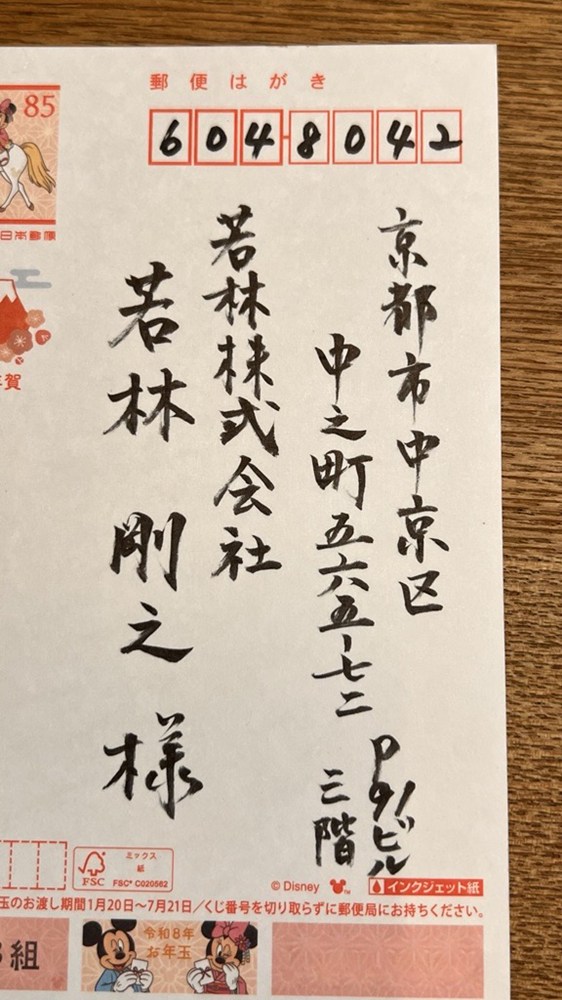 郵便はがき
85
日本郵便
6048042
京都市中京区
中之町五六五-七二
P91ビル
三階
若林株式会社
若林 剛之 様
賀
FSC
ミックス
紙
FSC® C020562
© Disney
インクジェット紙
玉のお渡し期間1月20日〜7月21日/くじ番号を切り取らずに郵便局にお持ちください。
組
令和8年
お年玉